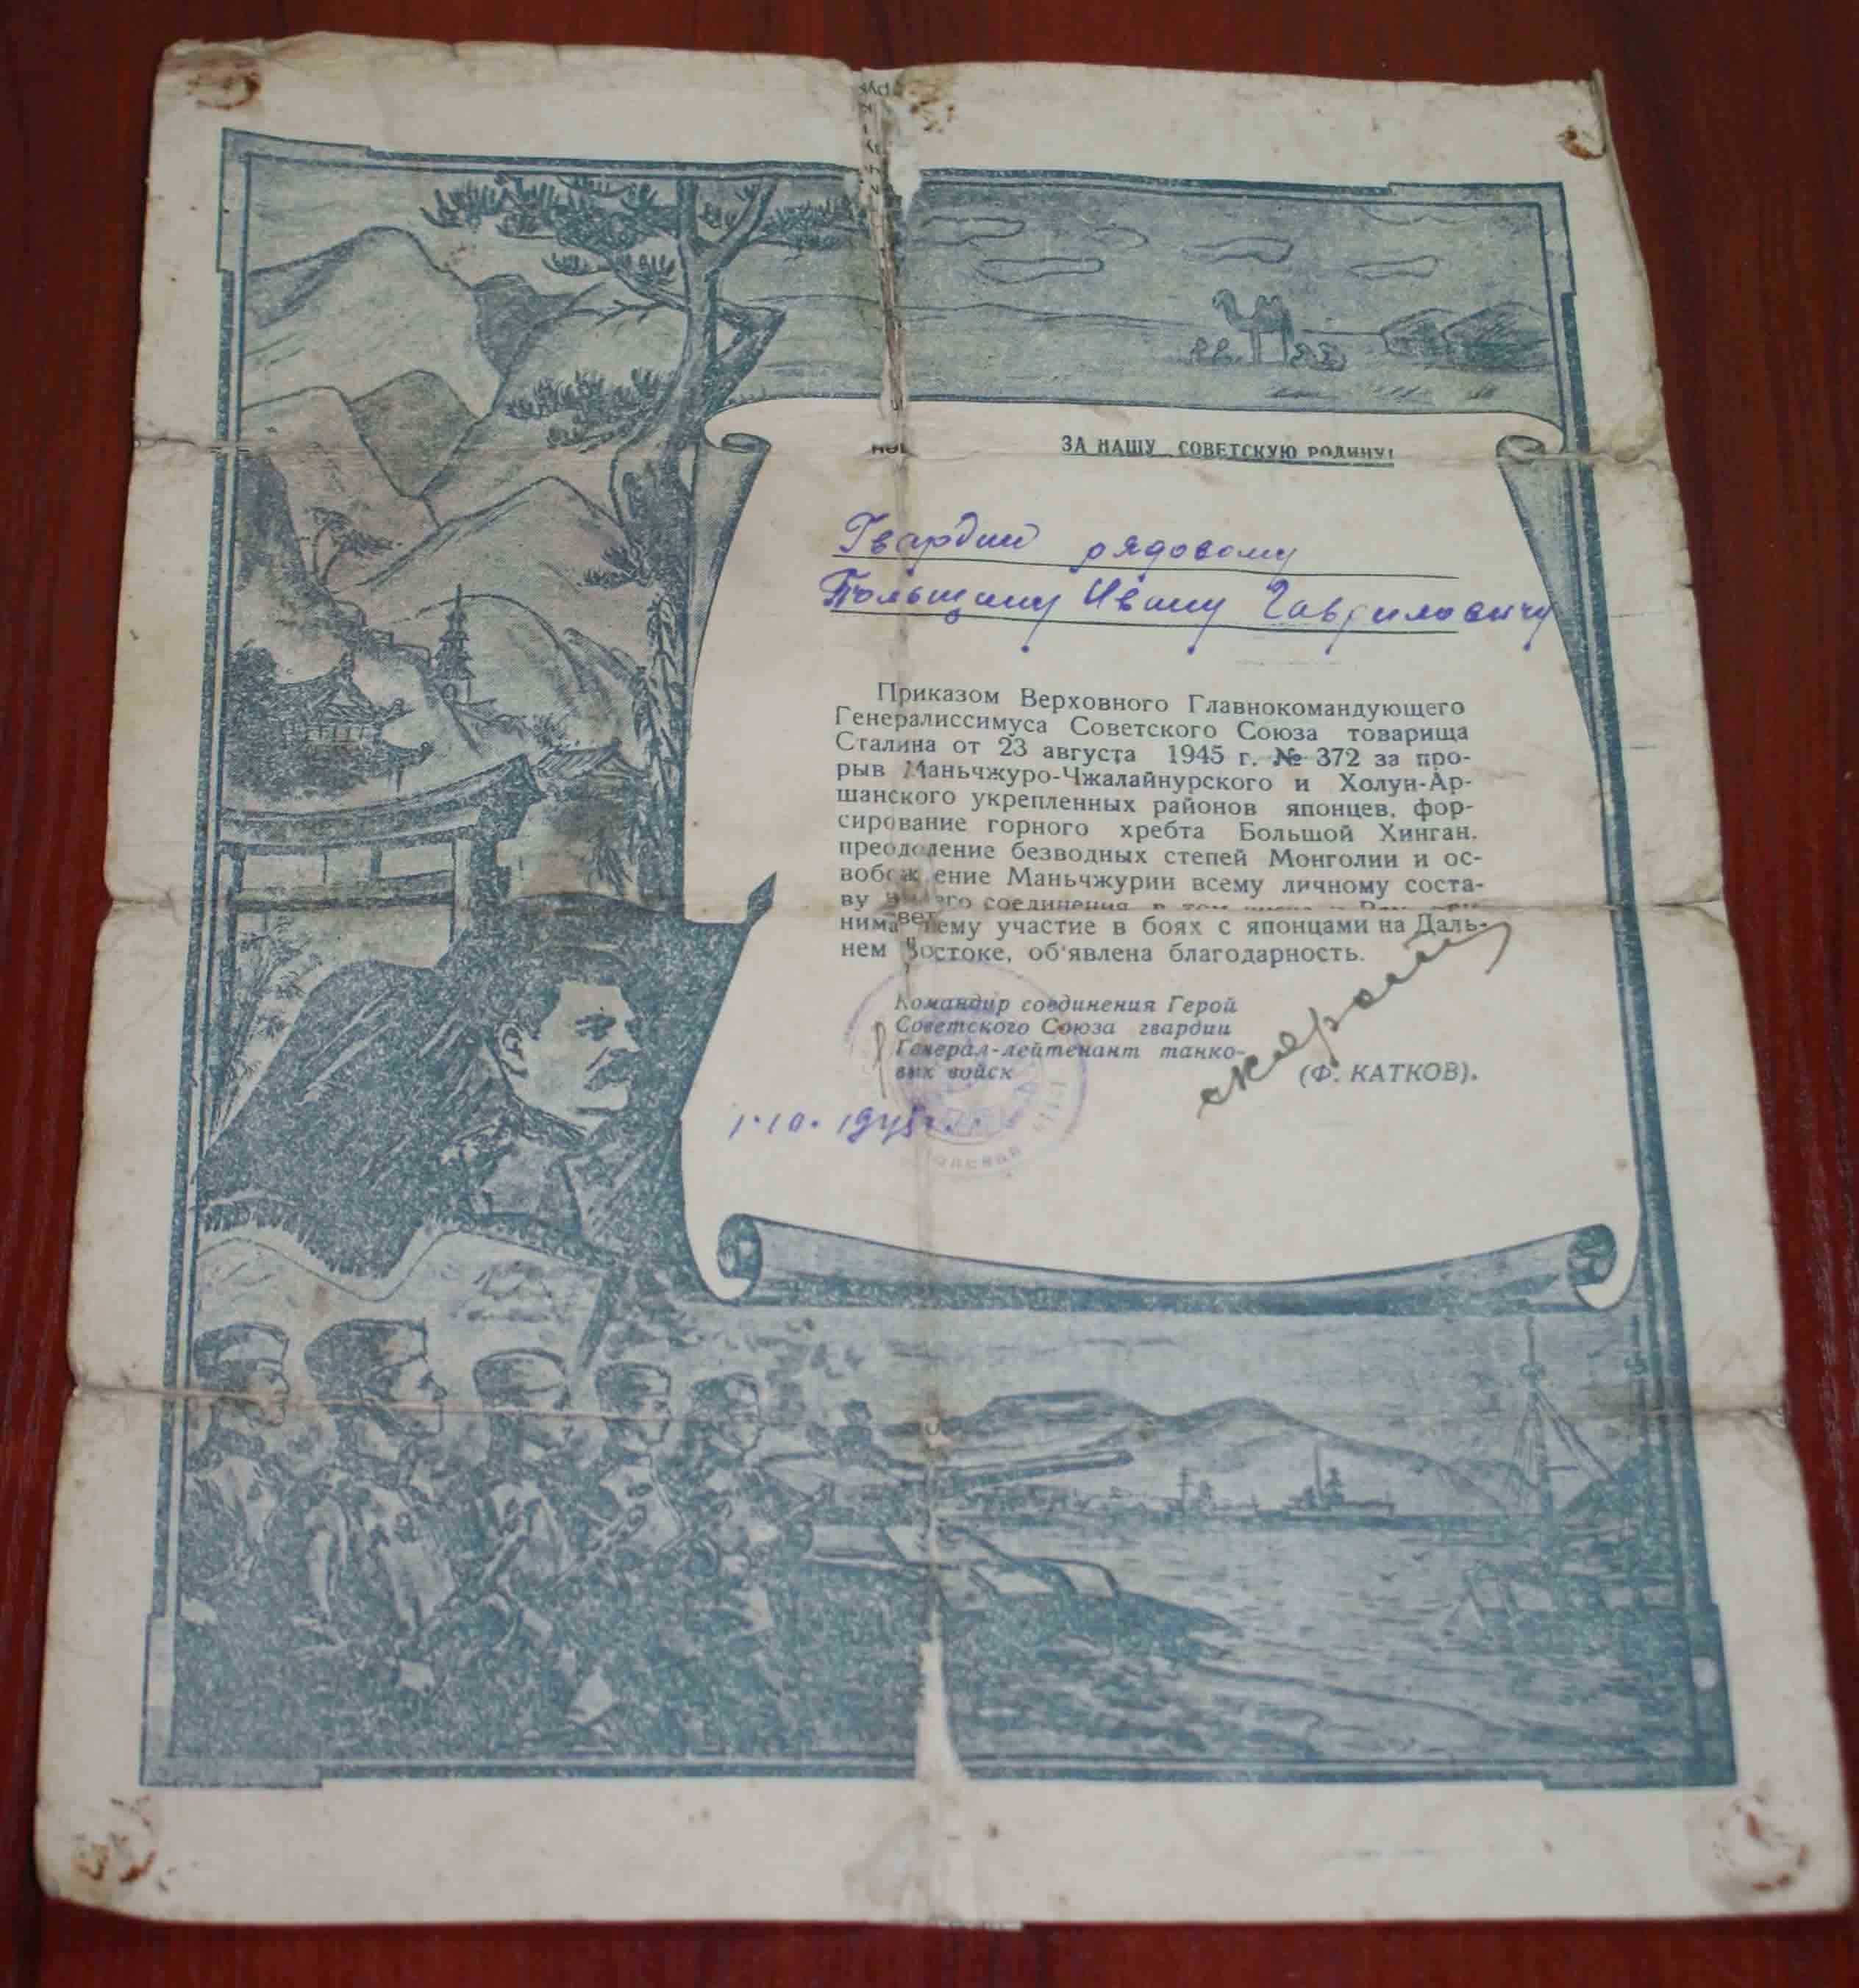 ЗА НАШУ СОВЕТСКУЮ РОДИНУ!
Гвардии рядовому
Польщину Ивану Гавриловичу
Приказом Верховного Главнокомандующего
Генералиссимуса Советского Союза товарища
Сталина от 23 августа 1945 г. № 372 за про-
рыв Маньчжуро-Чжалайнурского и Холун-Ар-
шанского укрепленных районов японцев, фор-
сирование горного хребта Большой Хинган,
преодоление безводных степей Монголии и ос-
вобождение Маньчжурии всему личному соста-
ву соединения, в том числе и Вам, при-
нимавшему участие в боях с японцами на Даль-
нем Востоке, об'явлена благодарность.
Командир соединения Герой
Советского Союза гвардии
Генерал-лейтенант танко-
вых войск
(Ф. КАТКОВ).
1.10.1945г.